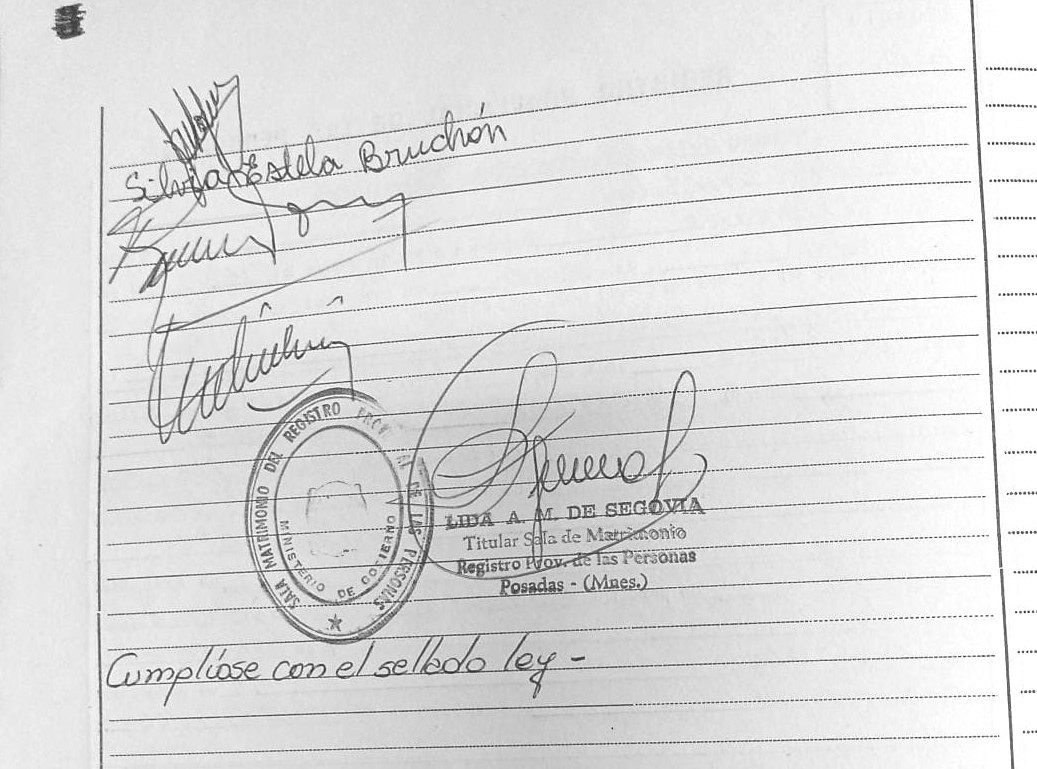 Silvia Estela Bruchón
SALA MATRIMONIO DEL REGISTRO PROV. DE LAS PERSONAS
MINISTERIO DE GOBIERNO
LIDA A. M. DE SEGOVIA
Titular Sala de Matrimonio
Registro Prov. de las Personas
Posadas - (Mnes.)
Cumplióse con el sellado ley -